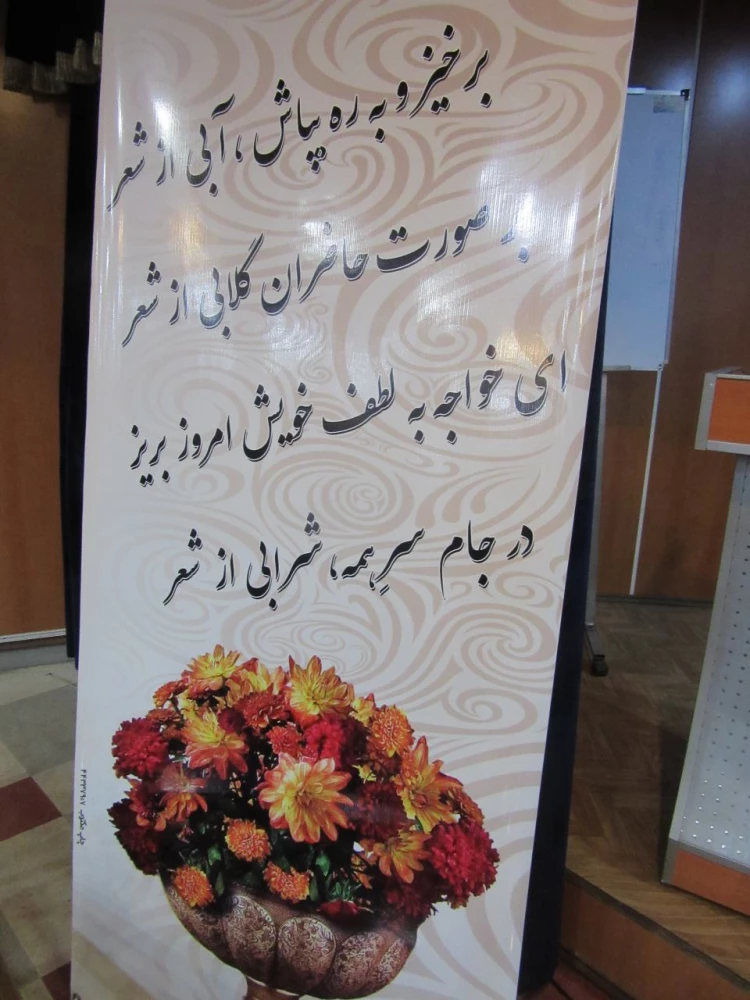 برخیز و به ره بپاش، آبی از شعر
بر صورت حاضران گلابی از شعر
ای خواجه به لطف خویش امروز بریز
در جام سرِ همه، شرابی از شعر